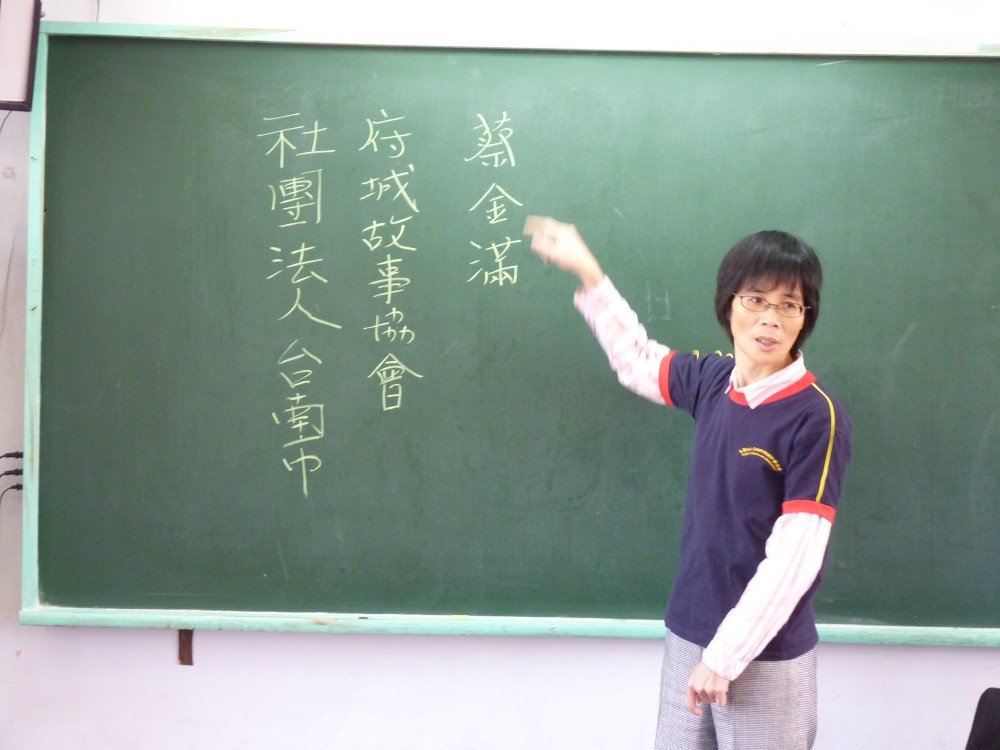 社團法人台南市
府城故事協會
蔡金滿